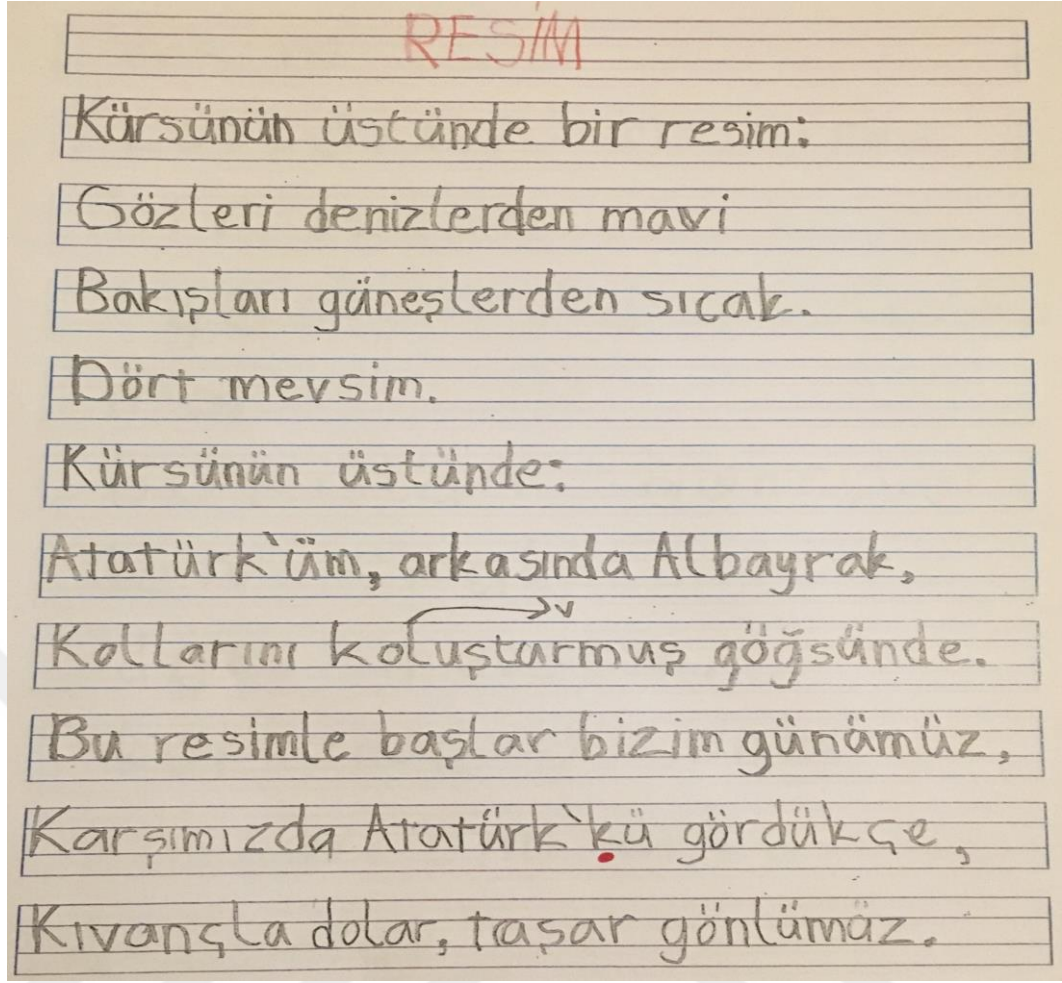 RESİM
Kürsünün üstünde bir resim:
Gözleri denizlerden mavi
Bakışları güneşlerden sıcak.
Dört mevsim.
Kürsünün üstünde:
Atatürk'üm, arkasında Albayrak,
Kollarını koluşturmuş göğsünde.
Bu resimle başlar bizim günümüz,
Karşımızda Atatürk'kü gördükçe,
Kıvançla dolar, taşar gönlümüz.